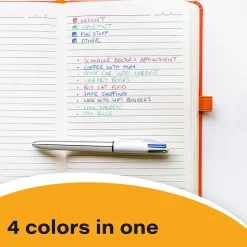 URGENT
IMPORTANT
FUN STUFF
OTHER
SCHEDULE DOCTOR'S APPOINTMENT
COFFEE WITH MUM
BOOK CAR INTO GARAGE
LIBRARY BOOKS
BUY CAT FOOD
SHOE SHOPPING
LOOK INTO WIFI PROVIDERS
CALL
PAY BILLS
4 colors in one